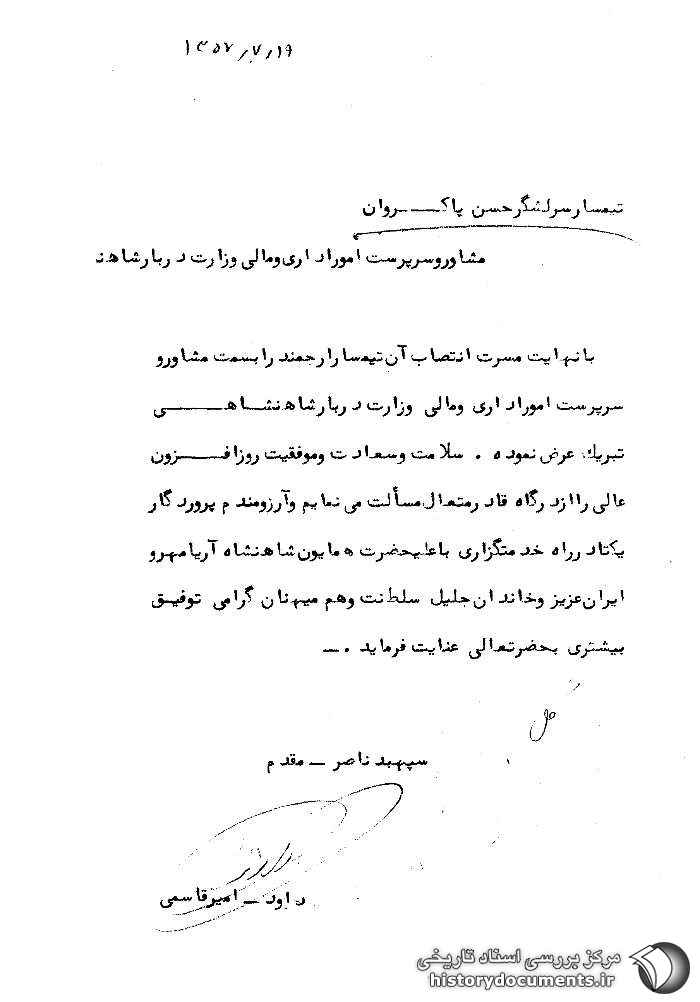 ۱۳۵۷/۷/۱۹
تیمسار سرلشگر حسن پاکـــروان
مشاور و سرپرست امور اداری و مالی وزارت دربار شاهنـ
با نهایت مسرت انتصاب آن تیمسار ارجمند را بسمت مشاور و
سرپرست امور اداری و مالی وزارت دربار شاهنشاهـــی
تبریك عرض نموده . سلامت و سعادت و موفقیت روزافـــزون
عالی را از درگاه قادر متعال مسألت می نمایم و آرزومندم پروردگار
یکتا در راه خدمتگزاری باعلیحضرت همایون شاهنشاه آریامهر و
ایران عزیز و خاندان جلیل سلطنت و هم میهنان گرامی توفیق
بیشتری بحضرتعالی عنایت فرماید .ــ
سپهبد ناصر ــ مقدم
داود ــ امیرقاسمی
مرکز بررسی اسناد تاریخی
historydocuments.ir